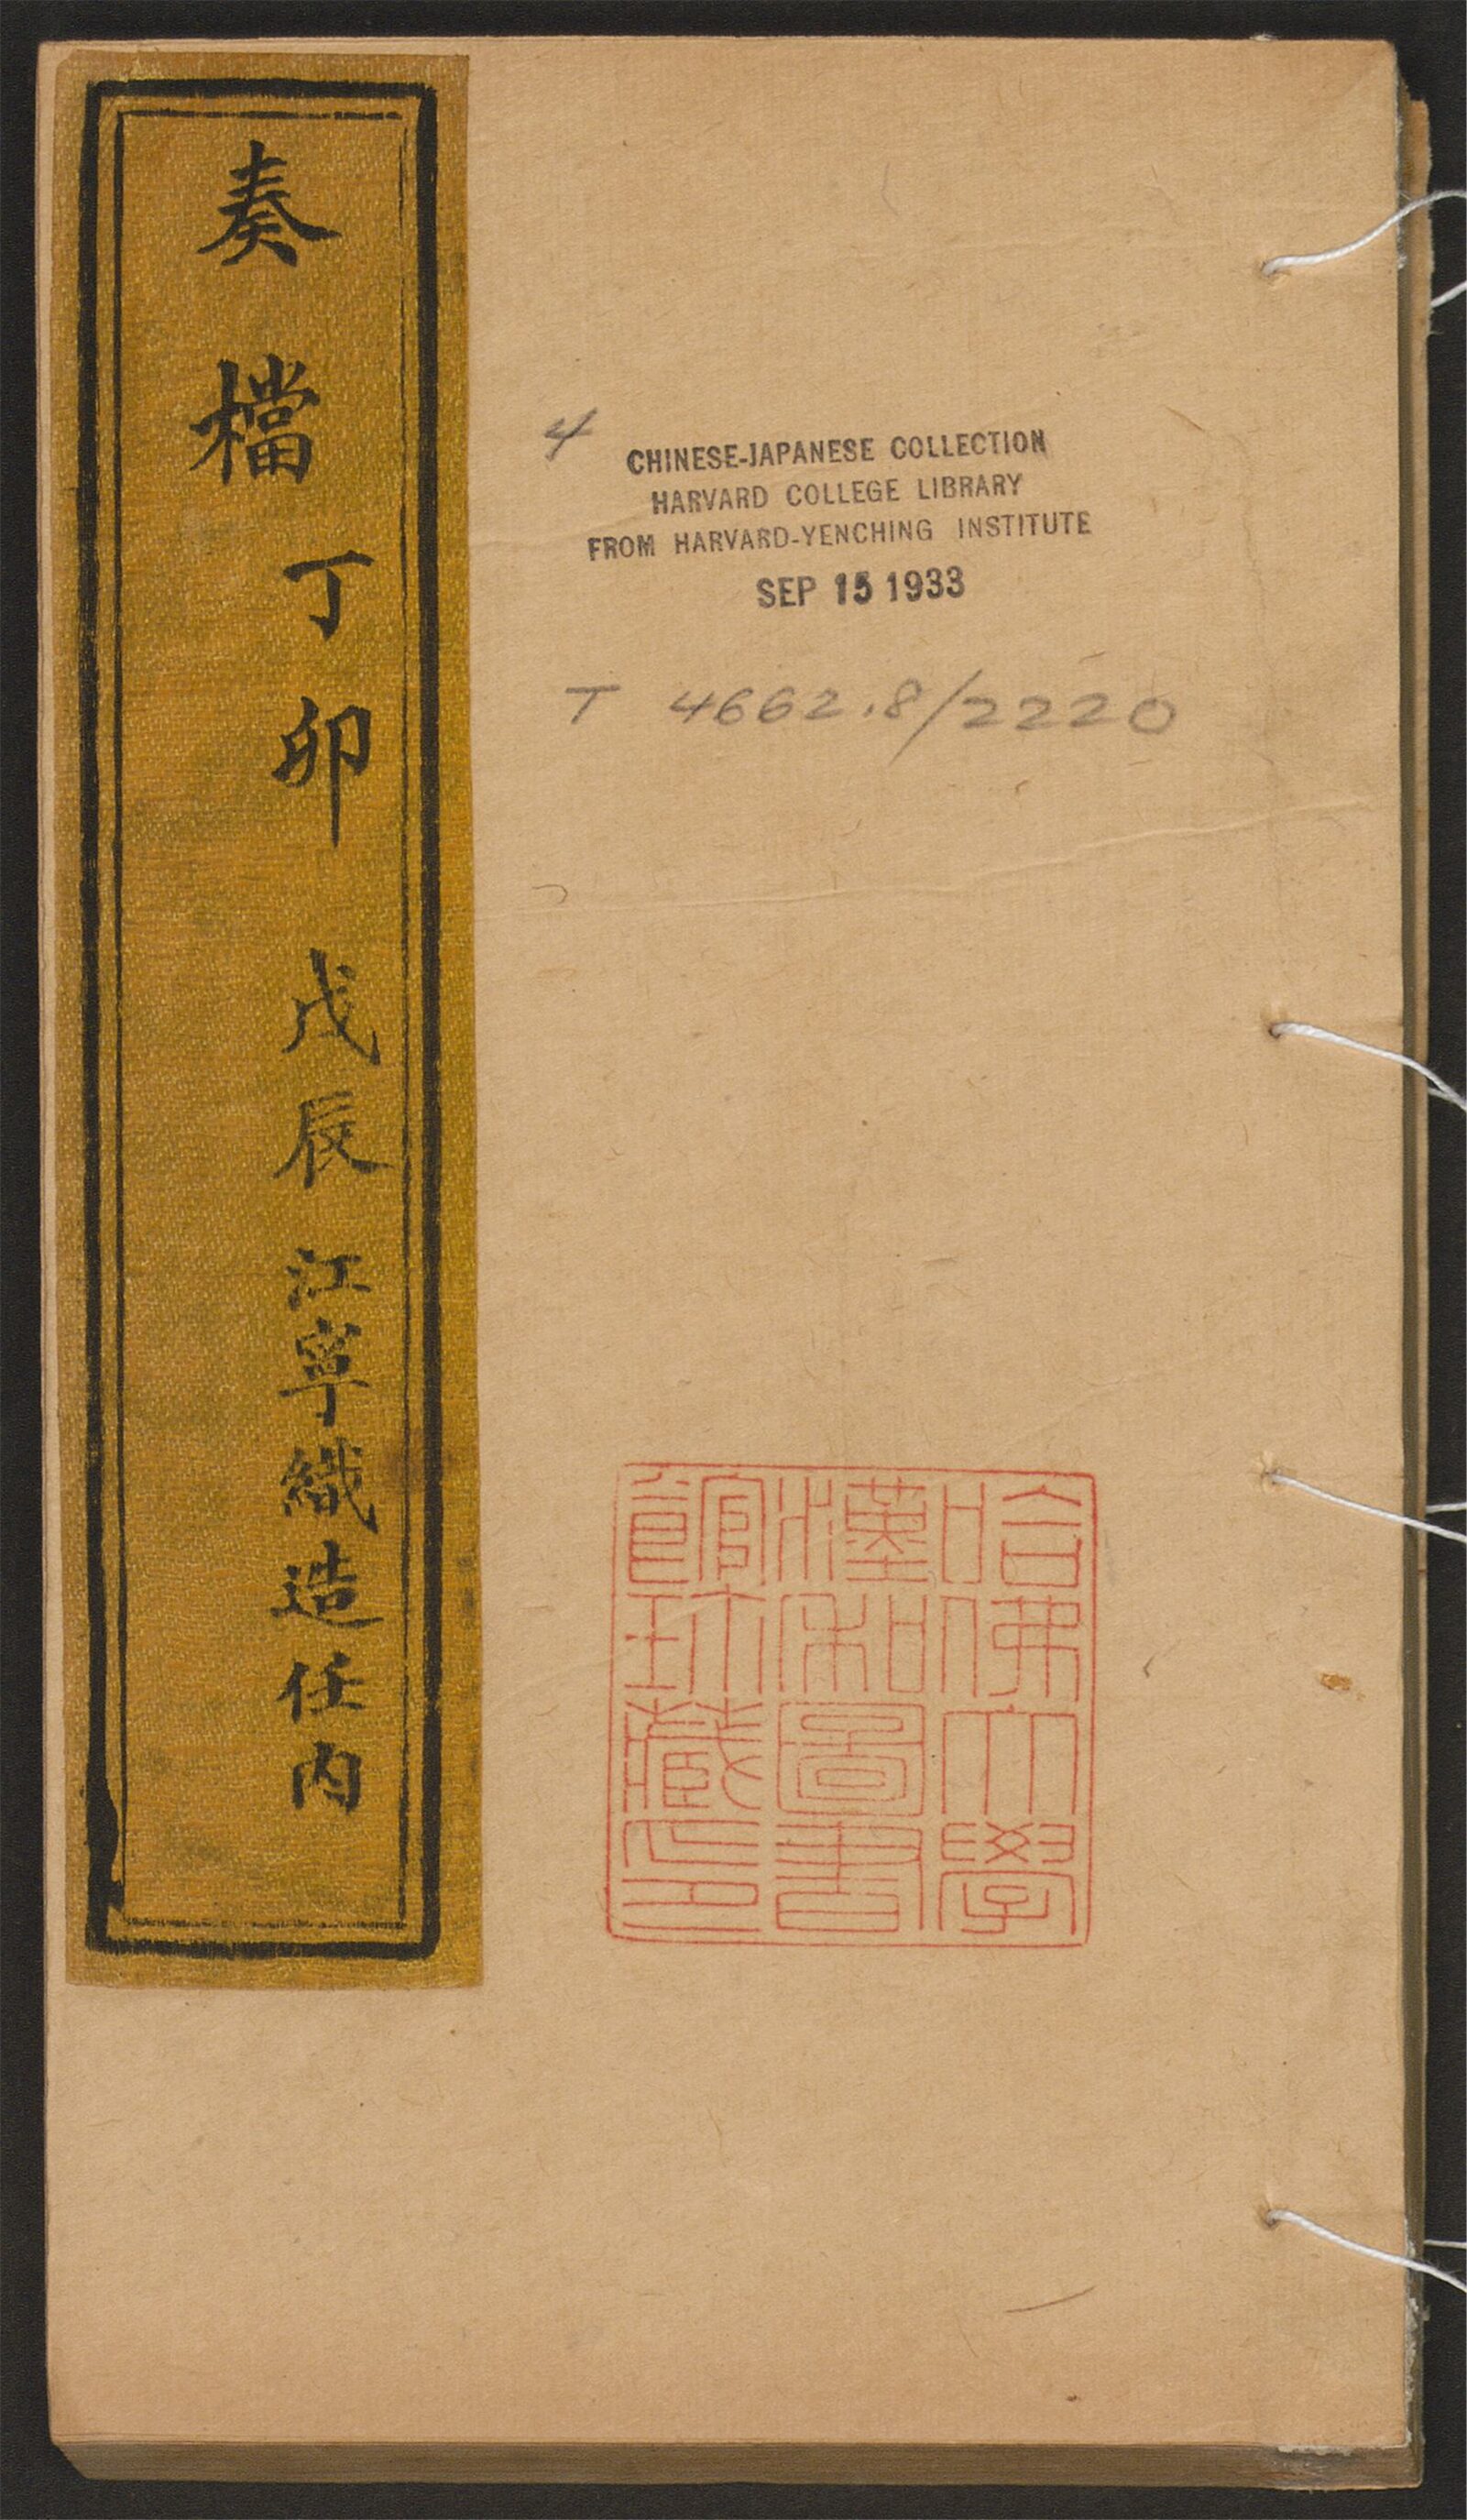 奏檔
丁卯 戊辰 江寧織造任内
4
CHINESE-JAPANESE COLLECTION
HARVARD COLLEGE LIBRARY
FROM HARVARD-YENCHING INSTITUTE
SEP 15 1933
T 4662.8/2220
哈佛大學
漢和圖書
館珍藏印